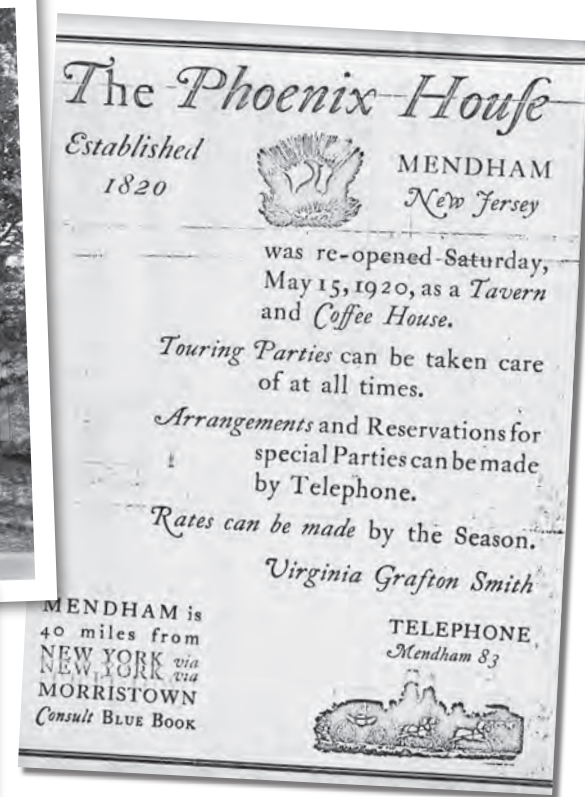 The Phoenix Houſe
Established
1820
MENDHAM
New Jersey
was re-opened Saturday,
May 15, 1920, as a Tavern
and Coffee House.
Touring Parties can be taken care
of at all times.
Arrangements and Reservations for
special Parties can be made
by Telephone.
Rates can be made by the Season.
Virginia Grafton Smith
MENDHAM is
40 miles from
NEW YORK via
NEW YORK via
MORRISTOWN
Consult BLUE BOOK
TELEPHONE
Mendham 83